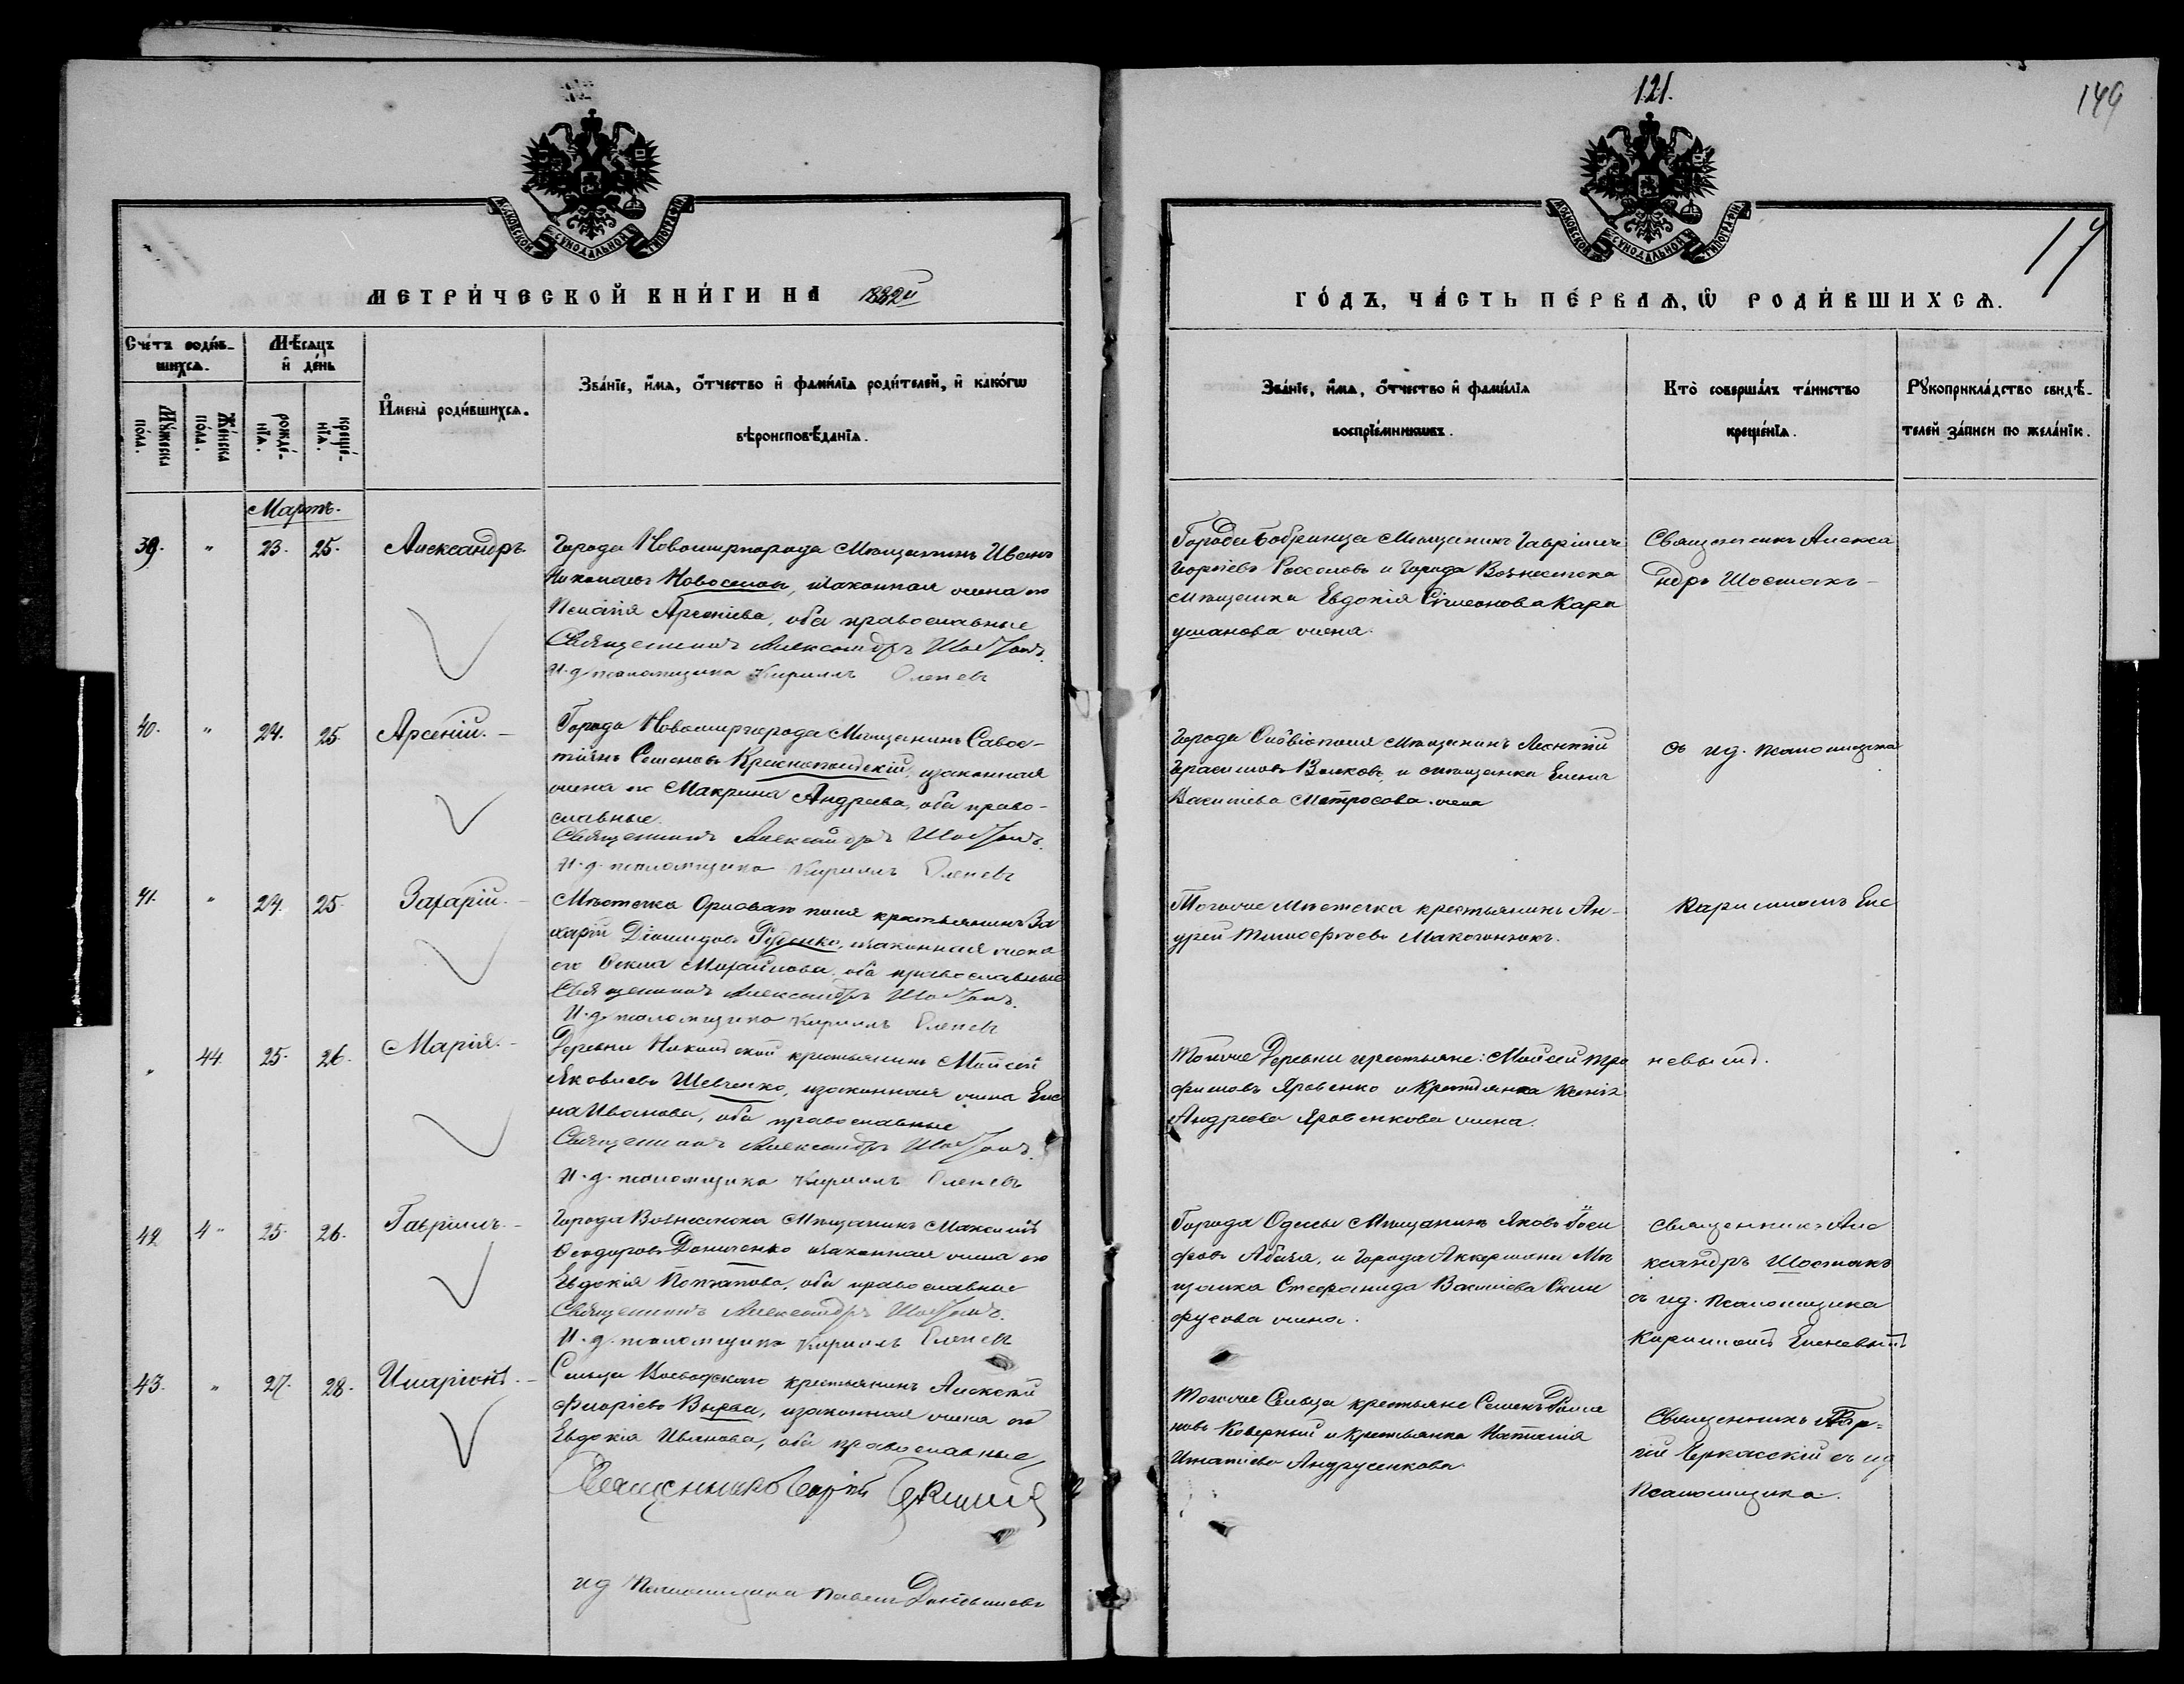 121.
149
МОСКОВСКОЙ СѴНОДАЛЬНОЙ ТИПОГРАФІИ
МОСКОВСКОЙ СѴНОДАЛЬНОЙ ТИПОГРАФІИ
17
МЕТРИ́ЧЕСКОЙ КНИ́ГИ НА 1882й
ГО́ДЪ, ЧА́СТЬ ПЕ́РВАѦ, Ѡ РОДИ́ВШИХСѦ.
Сче́тъ роди́в-
шихсѧ.
Мѣ́сѧцъ
и҆ де́нь
Мꙋ́жеска по́ла.
Же́нска по́ла.
рожде́-
нїѧ.
креще́-
нїѧ.
И҆мена̀ роди́вшихсѧ.
Зва́нїе, и҆́мѧ, ѻ҆́тчество и҆ фами́лїѧ роди́телей, и҆ како́гѡ
вѣроисповѣ́данїѧ.
Зва́нїе, и҆́мѧ, ѻ҆́тчество и҆ фами́лїѧ
воспрїе́мникѡвъ.
Кто̀ соверша́лъ та́инство
креще́нїѧ.
Рꙋкоприкла́дство свидѣ́-
телей за́писи по жела́нїю.
Мартъ.
39. " 23. 25. Александръ
Города Новомиргорода Мѣщанинъ Иванъ
Николаевъ Новоселов, изаконная жена его
Пелагія Арсеніева, оба православные
Священникъ Александръ Шостакъ.
И. д. псаломщика Кириллъ Еленевъ
Города Бобринца Мѣщанинъ Гавріилъ
Георгіевъ и города Вознесенска
мѣщанка Евдокія Симеонова Кара
ушанова жена.
Священникъ Алекса
ндръ Шостакъ-
40. " 24. 25. Арсеній.-
Города Новомиргорода Мѣщанинъ Савос-
тіянъ Семеновъ Краснопольскій, изаконная
жена его Макрина Андреева, оба право-
славные.
Священникъ Александръ Шостакъ.
И. д. псаломщика Кириллъ Еленевъ
Города Овидіополя Мѣщанинъ Леонтій
Герасимовъ Волковъ, и мѣщанка Елена
Василіева Матросова. жена
съ ид. псаломщика
41. " 24. 25. Захарій.-
Мѣстечка поля крестьянинъ За
харій Діомидовъ Руденко, изаконная жена
его Михайлова, оба православные
Священникъ Александръ Шостакъ.
И. д. псаломщика Кириллъ Еленевъ
Тогоже Мѣстечка крестьянинъ Ан-
дрей Тимофѣевъ Макогонюкъ.
Кирилломъ Еле
" 44 25. 26. Марія.-
Деревни Николаевской крестьянинъ Моисей
Яковлевъ Шевченко, изаконная жена Еле
на Иванова, оба православные
Священникъ Александръ Шостакъ.
И. д. псаломщика Кириллъ Еленевъ
Тойже Деревни крестьяне: Моисей Тро
фимовъ Яровенко и Крестьянка Ксенія
Андреева Яровенкова жена.
невымъ.
42 4" 25. 26. Гавріилъ.-
Города Вознесенска Мѣщанинъ Максимъ
Ѳеодоровъ Даниченко изаконная жена его
Евдокія Потапова, оба православные
Священникъ Александръ Шостакъ.
И. д. псаломщика Кириллъ Еленевъ
Города Одессы Мѣщанинъ Яковъ Іоси
фовъ и города Аккермана Мѣ
щанка Стефанида Василіева Скли
фусова жена.
Священникъ Але
ксандръ Шостакъ
съ ид. Псаломщика
Кирилломъ Еленевымъ
43. " 27. 28. Иларіонъ.-
Сельца крестьянинъ Алексѣй
Флоріевъ изаконная жена его
Евдокія Иванова, оба православные
Священникъ Георгій Черкасскій
ид Псаломщика Павелъ
Тогоже Сельца крестьяне Семенъ Рома
новъ Коверный и Крестьянка Наталія
Игнатіева Андрусенкова
Священникъ Геор-
гій Черкасскій съ ид
Псаломщика.